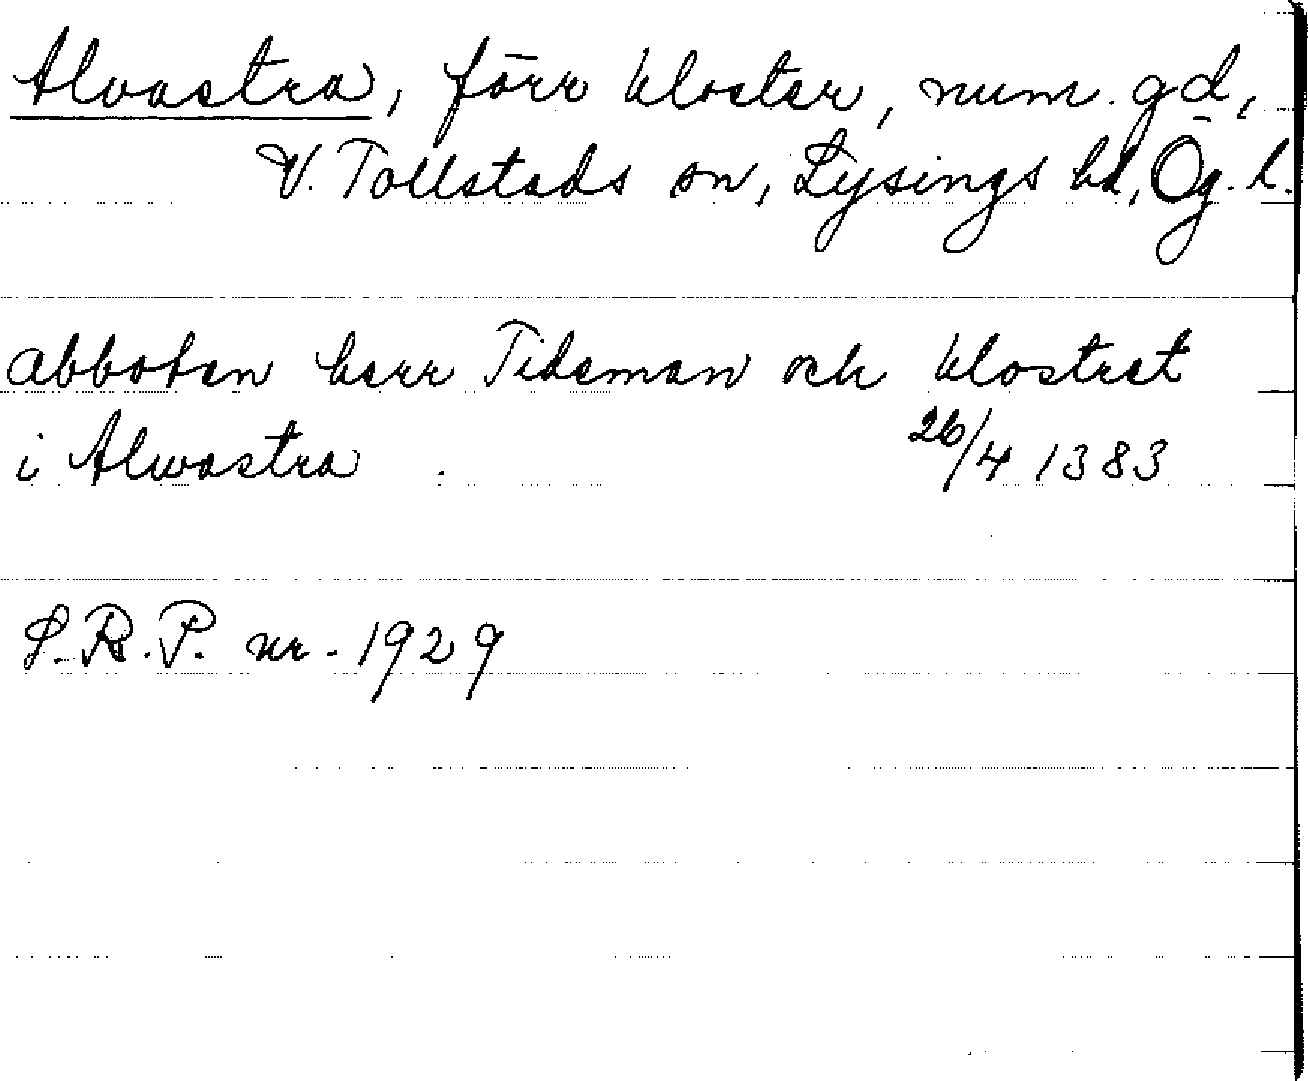 Alvastra, förr kloster, num. gd,
V. Tollstads sn, Lysings hd, Ög. l.
abboten herr Tideman och klostret
i Alwastra 26/4 1383
S.R.P. nr. 1929